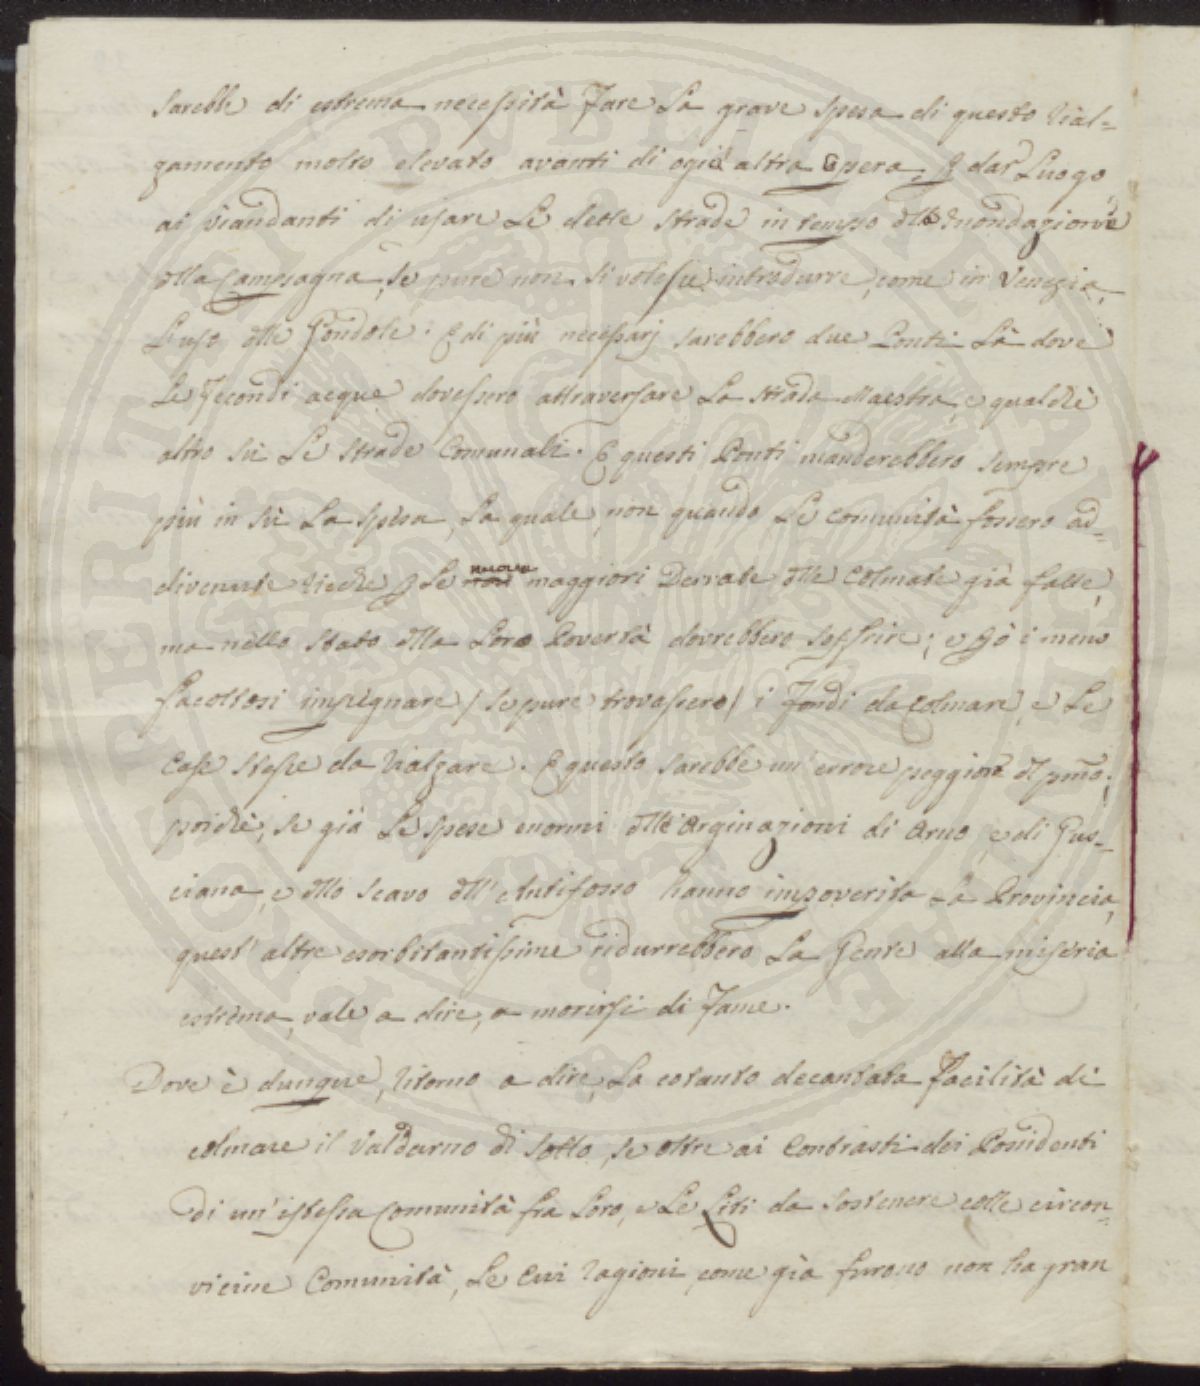 sarebbe di estrema necessità fare la grave spesa di questo rial=
zamento molto elevato avanti di ogni altra opera, p dar Luogo
ai viandanti di usare le dette strade in tempo dlle Inondazioni
dlla Campagna, se pure non si volesse introdurre, come in Venezia,
l'uso dlle Gondole. E di più necessarj sarebbero due Ponti là dove
le fecondi acque dovessero attraversare la strada Maestra, e qualche
altro sù le strade Comunali. E questi Ponti manderebbero sempre
più in sù la spesa, la quale, non quando le comunità fossero ad=
divenute ricche p le nuove maggiori Derrate dlle Colmate già fatte,
ma nello stato dlla loro Povertà dovrebbero soffrire; e pciò i meno
facoltosi impegnare / se pure trovassero / i fondi da Colmare, e le
Case stesse da rialzare. E questo sarebbe un' errore peggiore dl pmo;
poichè, se già le spese enormi dlle Arginazioni di Arno, e di Gus=
ciana, e dllo scavo dll' Antifosso hanno impoverita la Provincia,
quest' altre esorbitantissime ridurrebbero la Gente alla miseria
estrema, vale a dire, a morirsi di fame.
Dove è dunque, ritorno a dire, la cotanto decantata facilità di
colmare il Valdarno di sotto, se oltre ai Contrasti dei Possidenti
di un' istessa Comunità fra loro, e le Liti da sostenere colle circon=
vicine Comunità, le cui ragioni, come già furono non ha gran